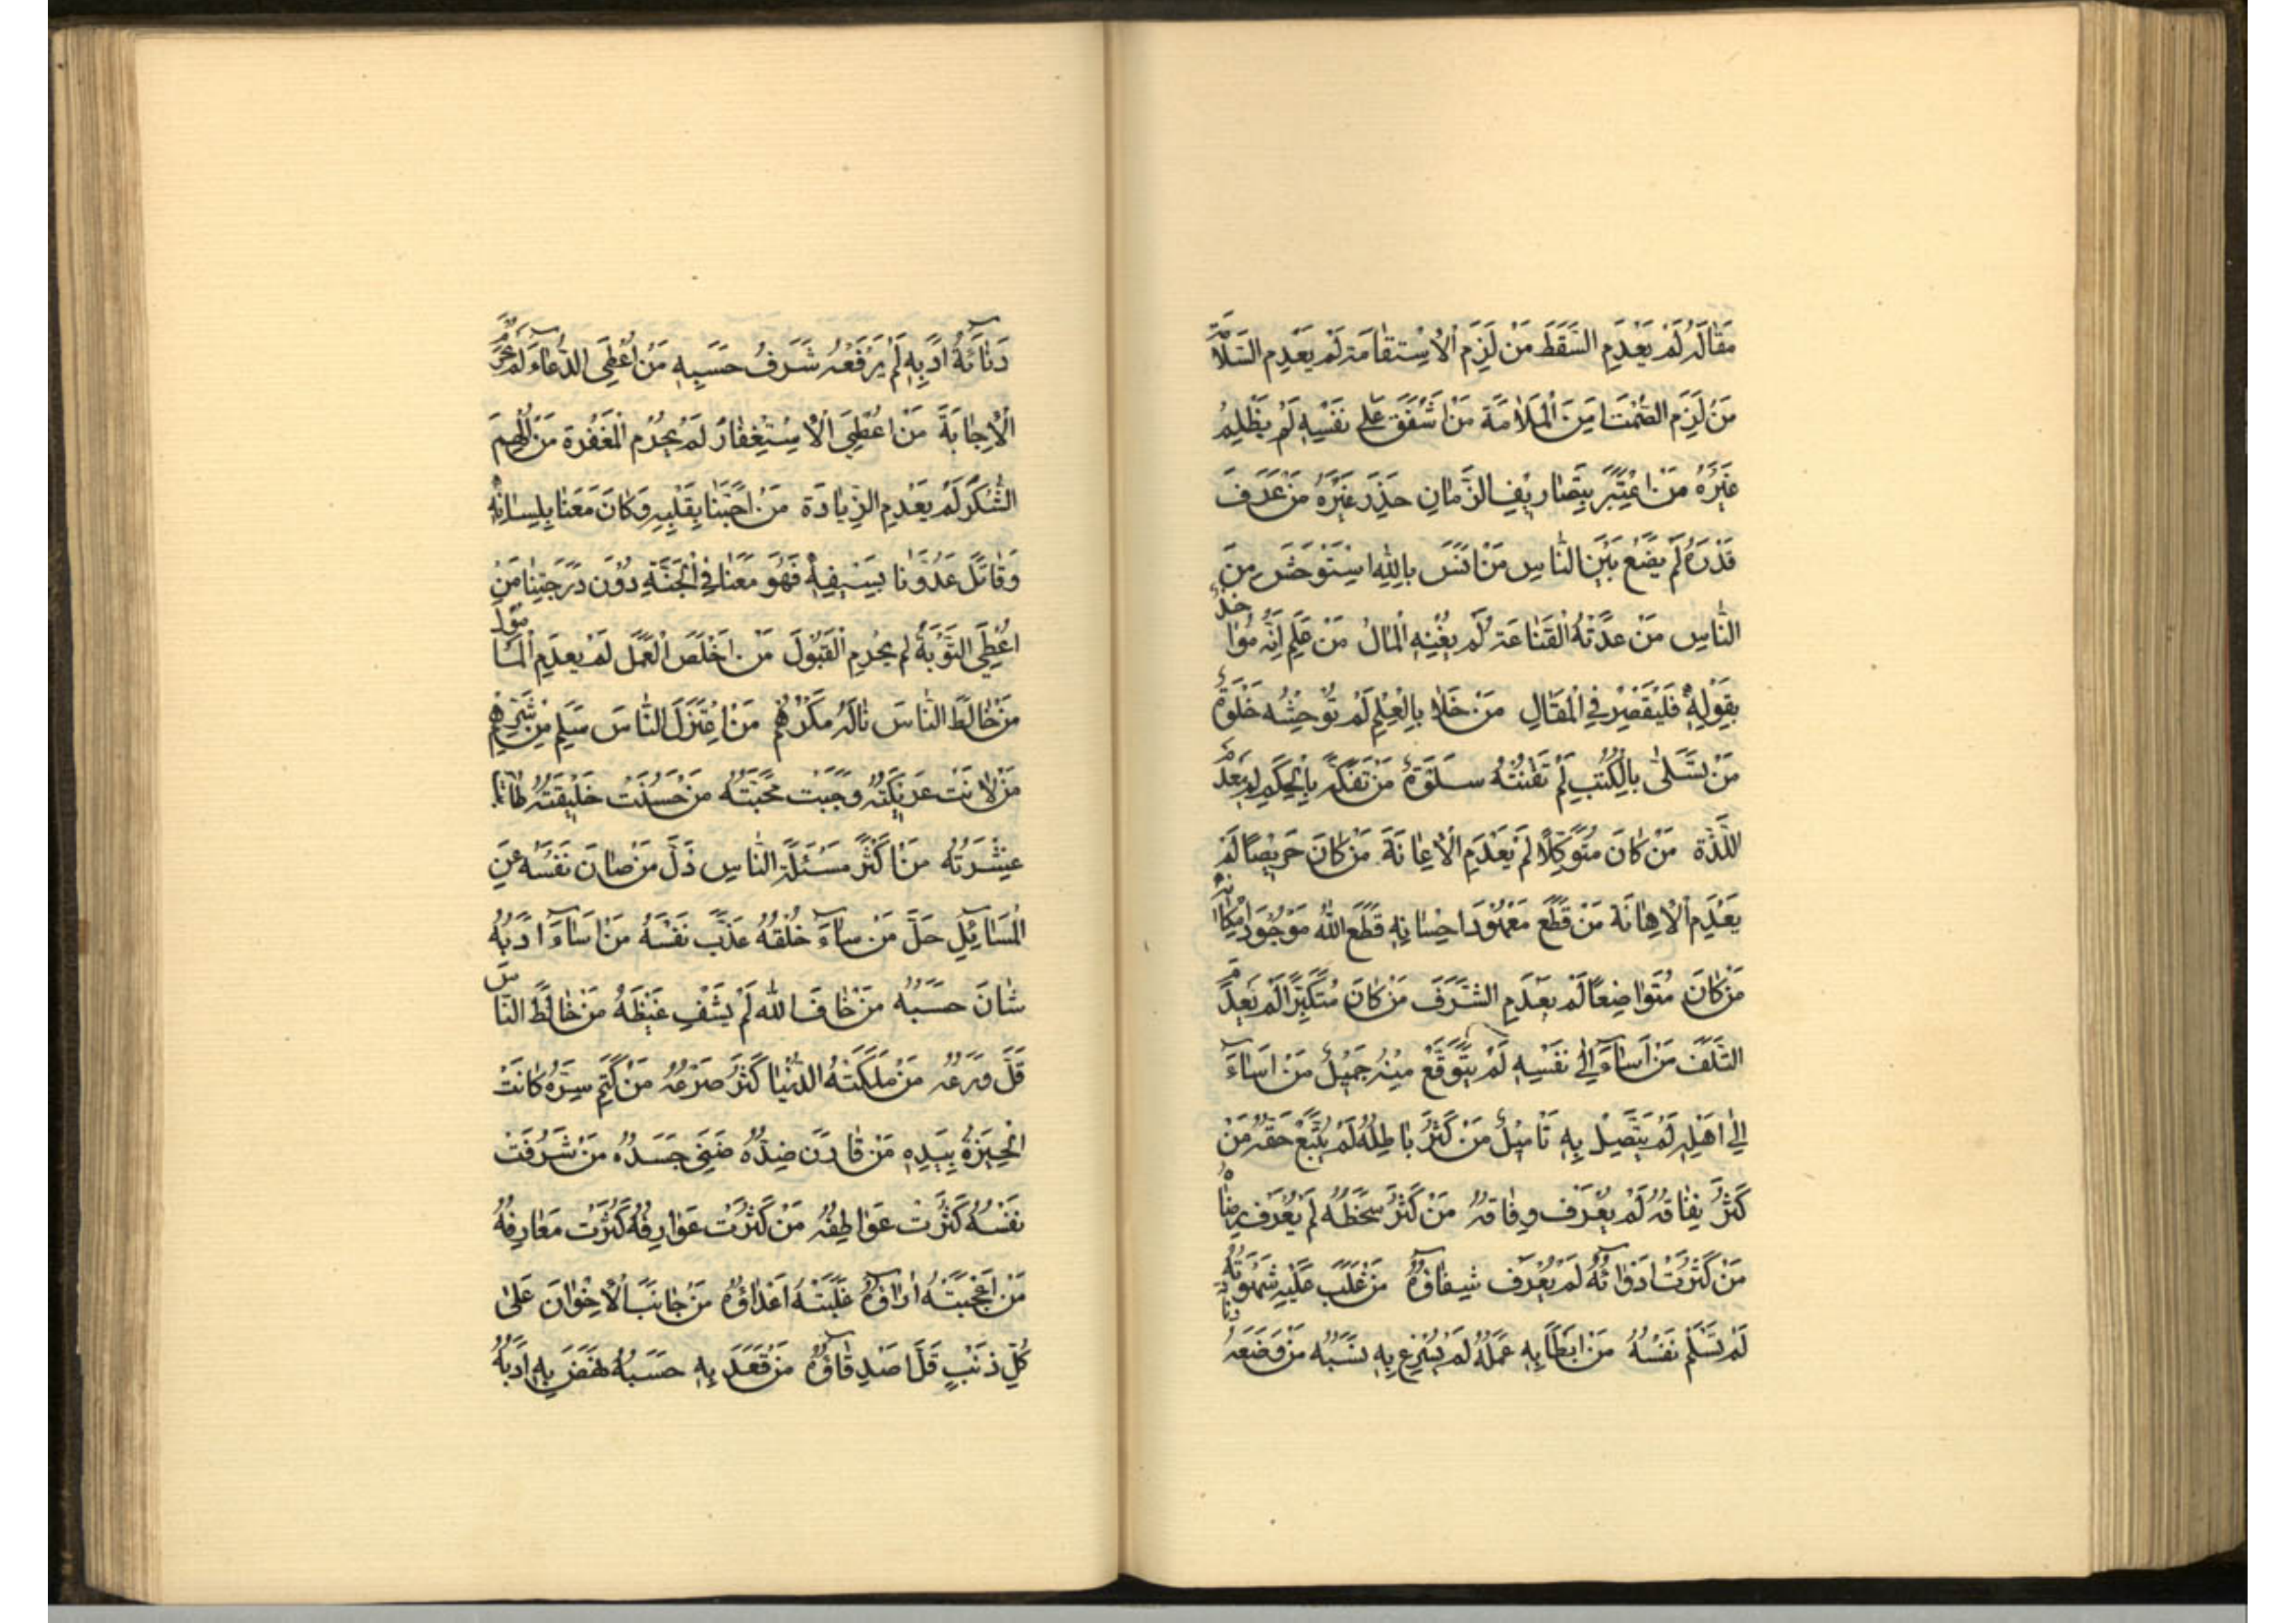 مَقَالُهُ لَمْ يَعْدَمِ السَّقَطَ مَنْ لَزِمَ الْاِسْتِقَامَةَ لَمْ يَعْدَمِ السَّلَامَة
مَنْ لَزِمَ الصَّمْتَ اَمِنَ الْمَلَامَةَ مَنْ اَشْفَقَ عَلٰى نَفْسِهِ لَمْ يَظْلِمْ
غَيْرَهُ مَنْ اعْتَبَرَ بِتَصَارِيفِ الزَّمَانِ حَذِرَ غَيْرَهُ مَنْ عَرَفَ
قَدْرَهُ لَمْ يَضَعْ بَيْنَ النَّاسِ مَنْ اٰنَسَ بِاللّٰهِ اسْتَوْحَشَ مِنَ
النَّاسِ مَنْ عَدَّتْهُ الْقَنَاعَةُ لَمْ يُغْنِهِ الْمَالُ مَنْ عَلِمَ اَنَّهُ مُؤَاخَذٌ
بِقَوْلِهِ فَلْيُقَصِّرْ فِي الْمَقَالِ مَنْ خَلَا بِالْعِلْمِ لَمْ تُوحِشْهُ خَلْوَةٌ
مَنْ تَسَلّٰى بِالْكُتُبِ لَمْ تَفُتْهُ سَلْوَةٌ مَنْ تَفَكَّهَ بِالْحِكَمِ لَمْ يَعْدَمِ
اللَّذَّةَ مَنْ كَانَ مُتَوَكِّلًا لَمْ يَعْدَمِ الْاِعَانَةَ مَنْ كَانَ حَرِيصًا لَمْ
يَعْدَمِ الْاِهَانَةَ مَنْ قَطَعَ مَعْهُودَ اِحْسَانِهِ قَطَعَ اللّٰهُ مَوْجُودَ اِمْكَانِهِ
مَنْ كَانَ مُتَوَاضِعًا لَمْ يَعْدَمِ الشَّرَفَ مَنْ كَانَ مُتَكَبِّرًا لَمْ يَعْدَمِ
التَّلَفَ مَنْ اَسَاءَ اِلٰى نَفْسِهِ لَمْ يُتَوَقَّعْ مِنْهُ جَمِيلٌ مَنْ اَسَاءَ
اِلٰى اَهْلِهِ لَمْ يَتَّصِلْ بِهِ تَاْمِيلٌ مَنْ كَثُرَ بَاطِلُهُ لَمْ يُتَّبَعْ حَقُّهُ مَنْ
كَثُرَ نِفَاقُهُ لَمْ يُعْرَفْ وِفَاقُهُ مَنْ كَثُرَ سَخَطُهُ لَمْ يُعْرَفْ رِضَاهُ
مَنْ كَثُرَتْ اَدْوَائُهُ لَمْ يُعْرَفْ شِفَاؤُهُ مَنْ غَلَبَ عَلَيْهِ شَهْوَتُهُ
لَمْ تَسْلَمْ نَفْسُهُ مَنْ اَبْطَاَ بِهِ عَمَلُهُ لَمْ يُسْرِعْ بِهِ نَسَبُهُ مَنْ وَضَعَهُ
دَنَائَةُ اَدَبِهِ لَمْ يَرْفَعْهُ شَرَفُ حَسَبِهِ مَنْ اُعْطِيَ الدُّعَاءَ لَمْ يُحْرَمِ
الْاِجَابَةَ مَنْ اُعْطِيَ الْاِسْتِغْفَارَ لَمْ يُحْرَمِ الْمَغْفِرَةَ مَنْ اُلْهِمَ
الشُّكْرَ لَمْ يَعْدَمِ الزِّيَادَةَ مَنْ اَحَبَّنَا بِقَلْبِهِ وَكَانَ مَعَنَا بِلِسَانِهِ
وَقَاتَلَ عَدُوَّنَا بِسَيْفِهِ فَهُوَ مَعَنَا فِي الْجَنَّةِ دُوْنَ دَرَجَتِنَا مَنْ
اُعْطِيَ التَّوْبَةَ لَمْ يُحْرَمِ الْقَبُولَ مَنْ اَخْلَصَ الْعَمَلَ لَمْ يَعْدَمِ الْمَاْمُولَ
مَنْ خَالَطَ النَّاسَ نَالَهُ مَكْرُهُمْ مَنِ اعْتَزَلَ النَّاسَ سَلِمَ مِنْ شَرِّهِمْ
مَنْ لَانَتْ عَرِيكَتُهُ وَجَبَتْ مَحَبَّتُهُ مَنْ حَسُنَتْ خَلِيقَتُهُ طَابَتْ
عِشْرَتُهُ مَنْ اَكْثَرَ مَسْئَلَةَ النَّاسِ ذَلَّ مَنْ صَانَ نَفْسَهُ عَنِ
الْمَسَائِلِ جَلَّ مَنْ سَاءَ خُلْقُهُ عَذَّبَ نَفْسَهُ مَنْ اَسَاءَ اَدَبَهُ
شَانَ حَسَبَهُ مَنْ خَافَ اللّٰهَ لَمْ يَشْفِ غَيْظَهُ مَنْ خَالَطَ النَّاسَ
قَلَّ وَرَعُهُ مَنْ مَلَكَتْهُ الدُّنْيَا كَثُرَ صَرَعُهُ مَنْ كَتَمَ سِرَّهُ كَانَتْ
الْخِيَرَةُ بِيَدِهِ مَنْ قَارَنَ ضِدَّهُ ضَنِيَ جَسَدُهُ مَنْ شَرُفَتْ
نَفْسُهُ كَثُرَتْ عَوَاطِفُهُ مَنْ كَثُرَتْ عَوَارِفُهُ كَثُرَتْ مَعَارِفُهُ
مَنْ اَعْجَبَتْهُ اٰرَاؤُهُ غَلَبَتْهُ اَعْدَاؤُهُ مَنْ جَانَبَ الْاِخْوَانَ عَلٰى
كُلِّ ذَنْبٍ قَلَّ اَصْدِقَاؤُهُ مَنْ قَعَدَ بِهِ حَسَبُهُ نَهَضَ بِهِ اَدَبُهُ